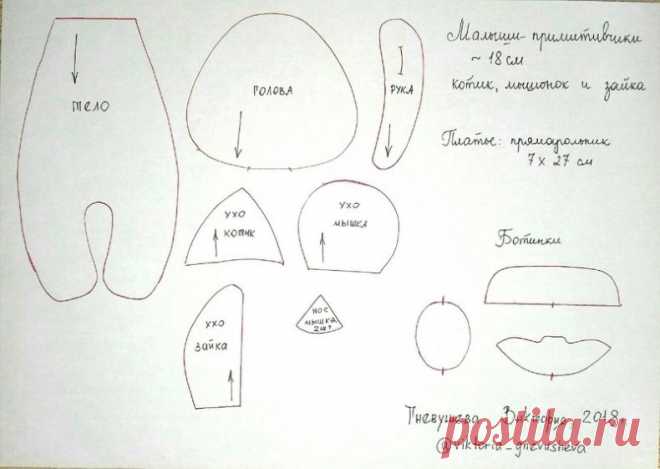 Малыши-примитивчики
~ 18 см
котик, мышонок и зайка
Платье: прямоугольник
7 х 27 см
тело
голова
рука
ухо
котик
ухо
мышка
Ботинки
ухо
зайка
нос
мышка
2шт
Гневушева Виктория 2018г
@viktoria_gnevusheva
postila.ru